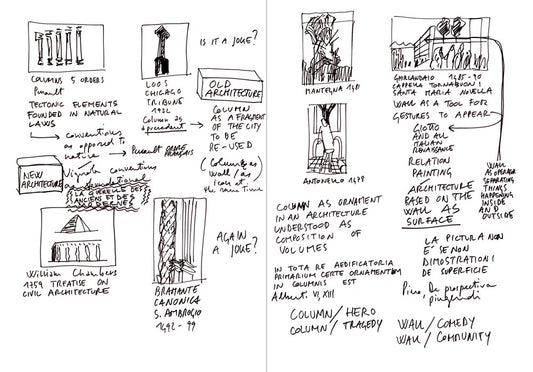 COLUMNS 5 ORDERS
Perrault
TECTONIC ELEMENTS
FOUNDED IN NATURAL
LAWS
conventions
as opposed to
nature
Perrault ORDRE
FRANÇAIS
Vignola conventions
as foundational
LA QUERELLE DES
ANCIENS ET DES
MODERNES
NEW
ARCHITECTURE
William Chambers
1759 TREATISE ON
CIVIL ARCHITECTURE
LOOS
CHICAGO
TRIBUNE
1922
Column as
precedent
IS IT A JOKE?
OLD
ARCHITECTURE
COLUMN
AS A FRAGMENT
OF THE CITY
TO BE
RE-USED
(Column as
wall / as
icon at
the same time
AGAIN
A JOKE?
BRAMANTE
CANONICA
S. AMBROGIO
1492-99
MANTEGNA 1481
ANTONELLO 1478
COLUMN AS ORNAMENT
IN AN ARCHITECTURE
UNDERSTOOD AS
COMPOSITION OF
VOLUMES
IN TOTA RE AEDIFICATORIA
PRIMARIUM CERTE ORNAMENTUM
IN COLUMNIS EST
Alberti VI, XIII
COLUMN / HERO
COLUMN / TRAGEDY
GHIRLANDAIO 1485-90
CAPPELLA TORNABUONI
SANTA MARIA NOVELLA
WALL AS A TOOL FOR
GESTURES TO APPEAR
GIOTTO
AND ALL
ITALIAN
RENAISSANCE
RELATION
PAINTING
ARCHITECTURE
BASED ON THE
WALL AS
SURFACE
WALL
AS OPERATOR
SEPARATING
THINGS
HAPPENING
INSIDE
AND
OUTSIDE
LA PICTURA NON
È SE NON
DIMOSTRATIONI
DE SUPERFICIE
Piero, De prospectiva
pingendi
WALL / COMEDY
WALL / COMMUNITY